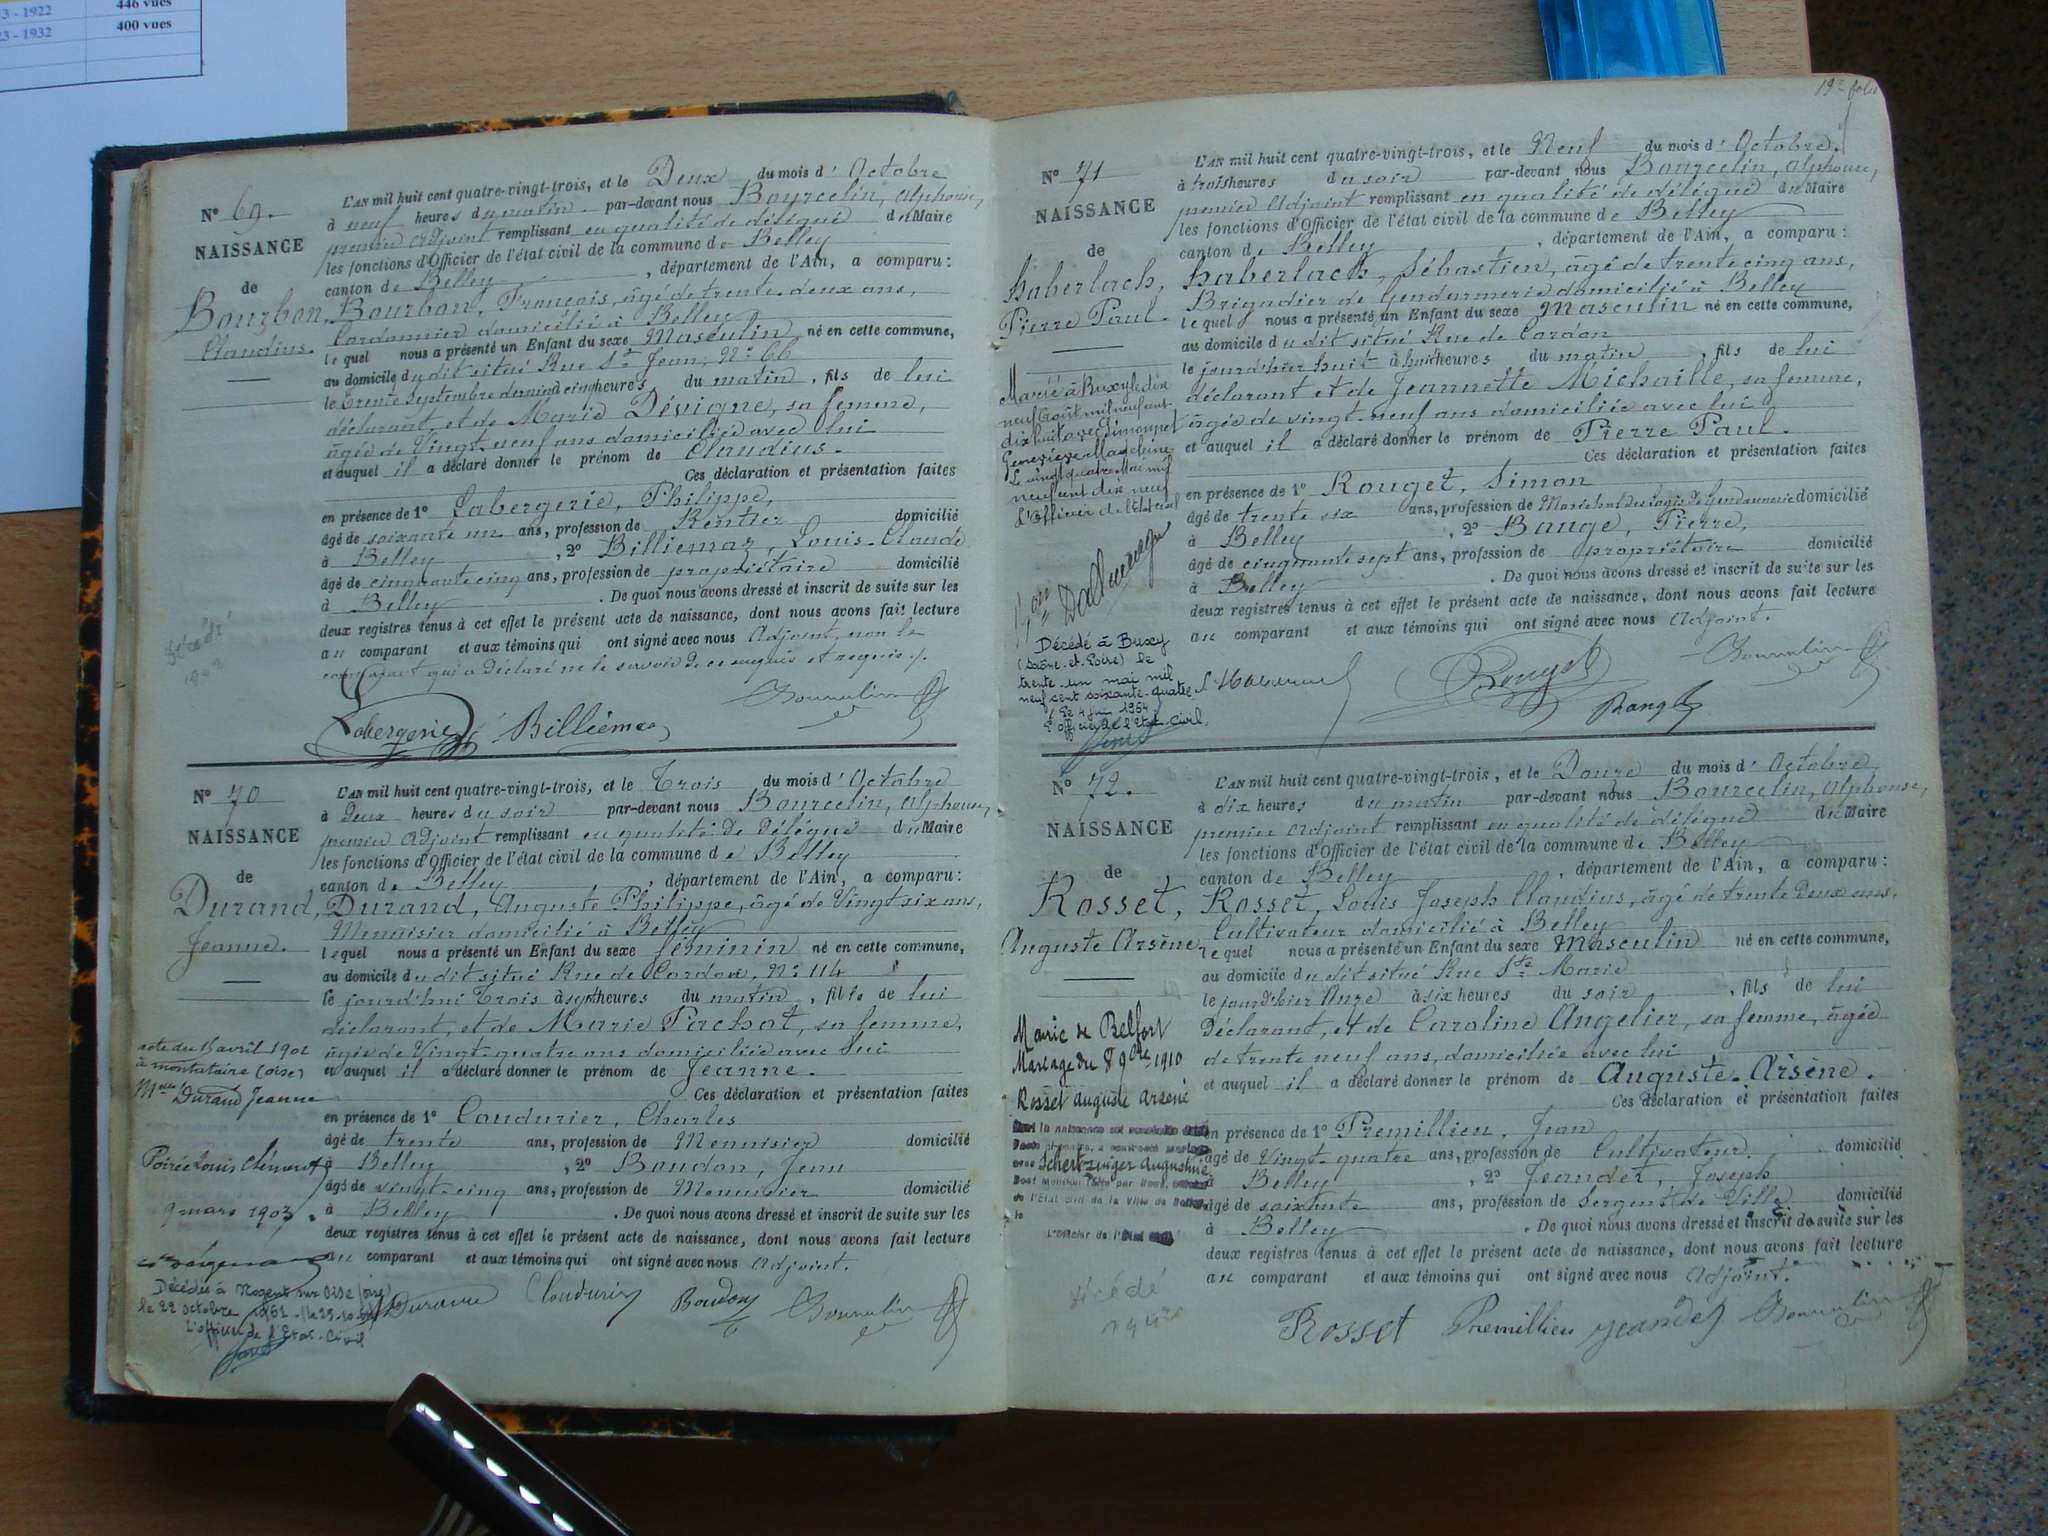 3 - 1922 446 vues
23 - 1932 400 vues
N° 69.
NAISSANCE
de
Bourbon
Claudius.
L'AN mil huit cent quatre-vingt-trois, et le Deux du mois d' Octobre
à neuf heures du matin par-devant nous Bourcelin, Alphonse,
premier Adjoint remplissant en qualité de délégué du Maire
les fonctions d'Officier de l'état civil de la commune de Belley
canton de Belley, département de l'Ain, a comparu :
Bourbon, François, âgé de trente-deux ans,
Cordonnier domicilié à Belley
lequel nous a présenté un Enfant du sexe Masculin né en cette commune,
au domicile du dit situé Rue St Jean, N° 66
le trente Septembre dernier à cinq heures du matin, fils de lui
déclarant, et de Marie Dévigne, sa femme,
âgée de Vingt-neuf ans domiciliée avec lui
et auquel il a déclaré donner le prénom de Claudius.
Ces déclaration et présentation faites
en présence de 1° Labergerie, Philippe,
âgé de soixante un ans, profession de Rentier domicilié
à Belley, 2° Billiemaz, Louis-Claude
âgé de cinquante cinq ans, profession de propriétaire domicilié
à Belley. De quoi nous avons dressé et inscrit de suite sur les
deux registres tenus à cet effet le présent acte de naissance, dont nous avons fait lecture
au comparant et aux témoins qui ont signé avec nous Adjoint, non le
comparant qui a déclaré ne le savoir de ce enquis et requis
Décédé
Labergerie Billiémaz
N° 70
NAISSANCE
de
Durand,
Jeanne.
L'AN mil huit cent quatre-vingt-trois, et le Trois du mois d' Octobre
à Deux heures du soir par-devant nous Bourcelin, Alphonse,
premier Adjoint remplissant en qualité de Délégué du Maire
les fonctions d'Officier de l'état civil de la commune de Belley
canton de Belley, département de l'Ain, a comparu :
Durand, Auguste Philippe, âgé de Vingt six ans,
Menuisier domicilié à Belley
lequel nous a présenté un Enfant du sexe féminin né en cette commune,
au domicile du dit situé Rue de Cordon, N° 114
le jourd'hui Trois à sept heures du matin, fille de lui
déclarant, et de Marie Pachot, sa femme,
âgée de Vingt-quatre ans domiciliée avec lui
et auquel il a déclaré donner le prénom de Jeanne.
Ces déclaration et présentation faites
en présence de 1° Coudurier, Charles
âgé de trente ans, profession de Menuisier domicilié
à Belley, 2° Boudon, Jean
âgé de vingt-cinq ans, profession de Menuisier domicilié
à Belley. De quoi nous avons dressé et inscrit de suite sur les
deux registres tenus à cet effet le présent acte de naissance, dont nous avons fait lecture
au comparant et aux témoins qui ont signé avec nous Adjoint.
acte du 15 avril 1902
à montataire (oise)
Durand Jeanne
Poirée Louis Clément
9 mars 1903
Décédée à Nogent sur Oise (oise)
le 22 octobre 1961
L'officier de l'Etat-Civil
Durand Coudurier Boudon
19e folio
N° 71
NAISSANCE
de
Haberlach,
Pierre Paul.
L'AN mil huit cent quatre-vingt-trois, et le Neuf du mois d' Octobre,
à trois heures du soir par-devant nous Bourcelin, Alphonse,
premier Adjoint remplissant en qualité de délégué du Maire
les fonctions d'Officier de l'état civil de la commune de Belley
canton de Belley, département de l'Ain, a comparu :
Haberlach, Sébastien, âgé de trente cinq ans,
Brigadier de Gendarmerie domicilié à Belley
lequel nous a présenté un Enfant du sexe Masculin né en cette commune,
au domicile du dit situé Rue de Cordon
le jourd'hier huit à huit heures du matin, fils de lui
déclarant et de Jeannette Michaille, sa femme,
âgée de vingt-neuf ans domiciliée avec lui
et auquel il a déclaré donner le prénom de Pierre Paul.
Ces déclaration et présentation faites
en présence de 1° Rouget, Simon
âgé de trente six ans, profession de Maréchal des logis de Gendarmerie domicilié
à Belley, 2° Bauge, Pierre,
âgé de cinquante sept ans, profession de propriétaire domicilié
à Belley. De quoi nous avons dressé et inscrit de suite sur les
deux registres tenus à cet effet le présent acte de naissance, dont nous avons fait lecture
au comparant et aux témoins qui ont signé avec nous Adjoint.
Marié à Buxy le dix
neuf Août mil neuf cent
dix huit avec Simonnot
Geneviève Madeleine
Le vingt quatre Mai mil
neuf cent dix neuf
L'Officier de l'Etat civil
Décédé à Buxy
(Saône-et-Loire) le
trente-un mai mil
neuf cent soixante-quatre
Le 4 juin 1964
L'officier de l'Etat-Civil
Rouget
N° 72.
NAISSANCE
de
Rosset,
Auguste Arsène
L'AN mil huit cent quatre-vingt-trois, et le Douze du mois d' Octobre
à dix heures du matin par-devant nous Bourcelin, Alphonse,
premier Adjoint remplissant en qualité de délégué du Maire
les fonctions d'Officier de l'état civil de la commune de Belley
canton de Belley, département de l'Ain, a comparu :
Rosset, Louis Joseph Claudius, âgé de trente Deux ans,
Cultivateur domicilié à Belley
lequel nous a présenté un Enfant du sexe Masculin né en cette commune,
au domicile du dit situé Rue Ste Marie
le jourd'hier Onze à six heures du soir, fils de lui
Déclarant, et de Caroline Angelier, sa femme, âgée
de trente neuf ans, domiciliée avec lui
et auquel il a déclaré donner le prénom de Auguste-Arsène.
Ces déclaration et présentation faites
en présence de 1° Premillieu, Jean
âgé de Vingt-quatre ans, profession de Cultivateur domicilié
à Belley, 2° Jeandet, Joseph
âgé de soixante ans, profession de Sergent de Ville domicilié
à Belley. De quoi nous avons dressé et inscrit de suite sur les
deux registres tenus à cet effet le présent acte de naissance, dont nous avons fait lecture
au comparant et aux témoins qui ont signé avec nous Adjoint.
Mairie de Belfort
Mariage du 8 9bre 1910
Rosset auguste arsène
Schertzinger Augustine
de l'Etat civil de la Ville de
L'Officier de l'Etat
Décédé
Rosset Premillieu Jeandet